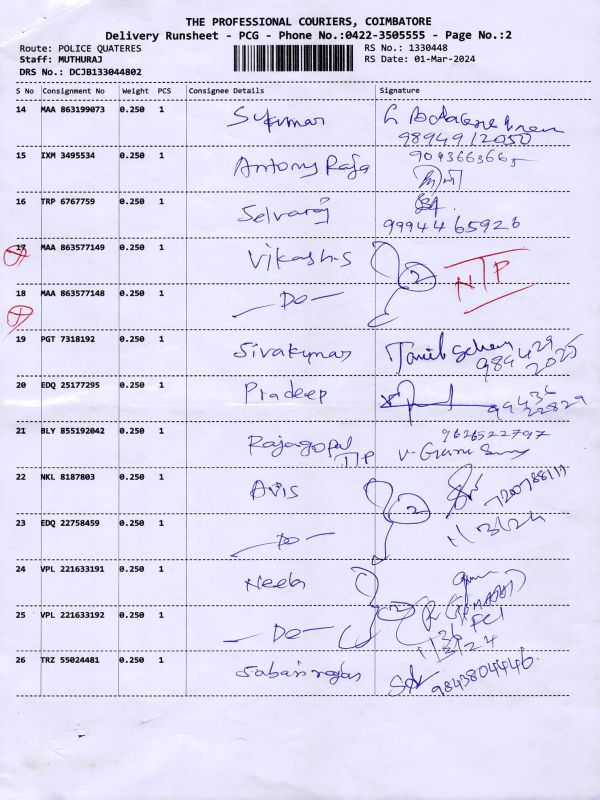 THE PROFESSIONAL COURIERS, COIMBATORE
Delivery Runsheet - PCG - Phone No.:0422-3505555 - Page No.:2
Route: POLICE QUATERES RS No.: 1330448
Staff: MUTHURAJ RS Date: 01-Mar-2024
DRS No.: DCJB133044802
S No Consignment No Weight PCS Consignee Details Signature
14 MAA 863199073 0.250 1 Sukumar
9894912050
15 IXM 3495534 0.250 1 Antony Raja
16 TRP 6767759 0.250 1 Selvaraj
9994465926
17 MAA 863577149 0.250 1 Vikash-S 2 NTP
18 MAA 863577148 0.250 1 -Do-
19 PGT 7318192 0.250 1 Sivakumar
9894292025
20 EDQ 25177295 0.250 1 Pradeep
9943622829
21 BLY 855192042 0.250 1 Rajagopal 9626522797
22 NKL 8187803 0.250 1 Avis 2
1/3/24
23 EDQ 22758459 0.250 1 -Do-
24 VPL 221633191 0.250 1
25 VPL 221633192 0.250 1 -Do- 2
1/3/24
26 TRZ 55024481 0.250 1 9843804446